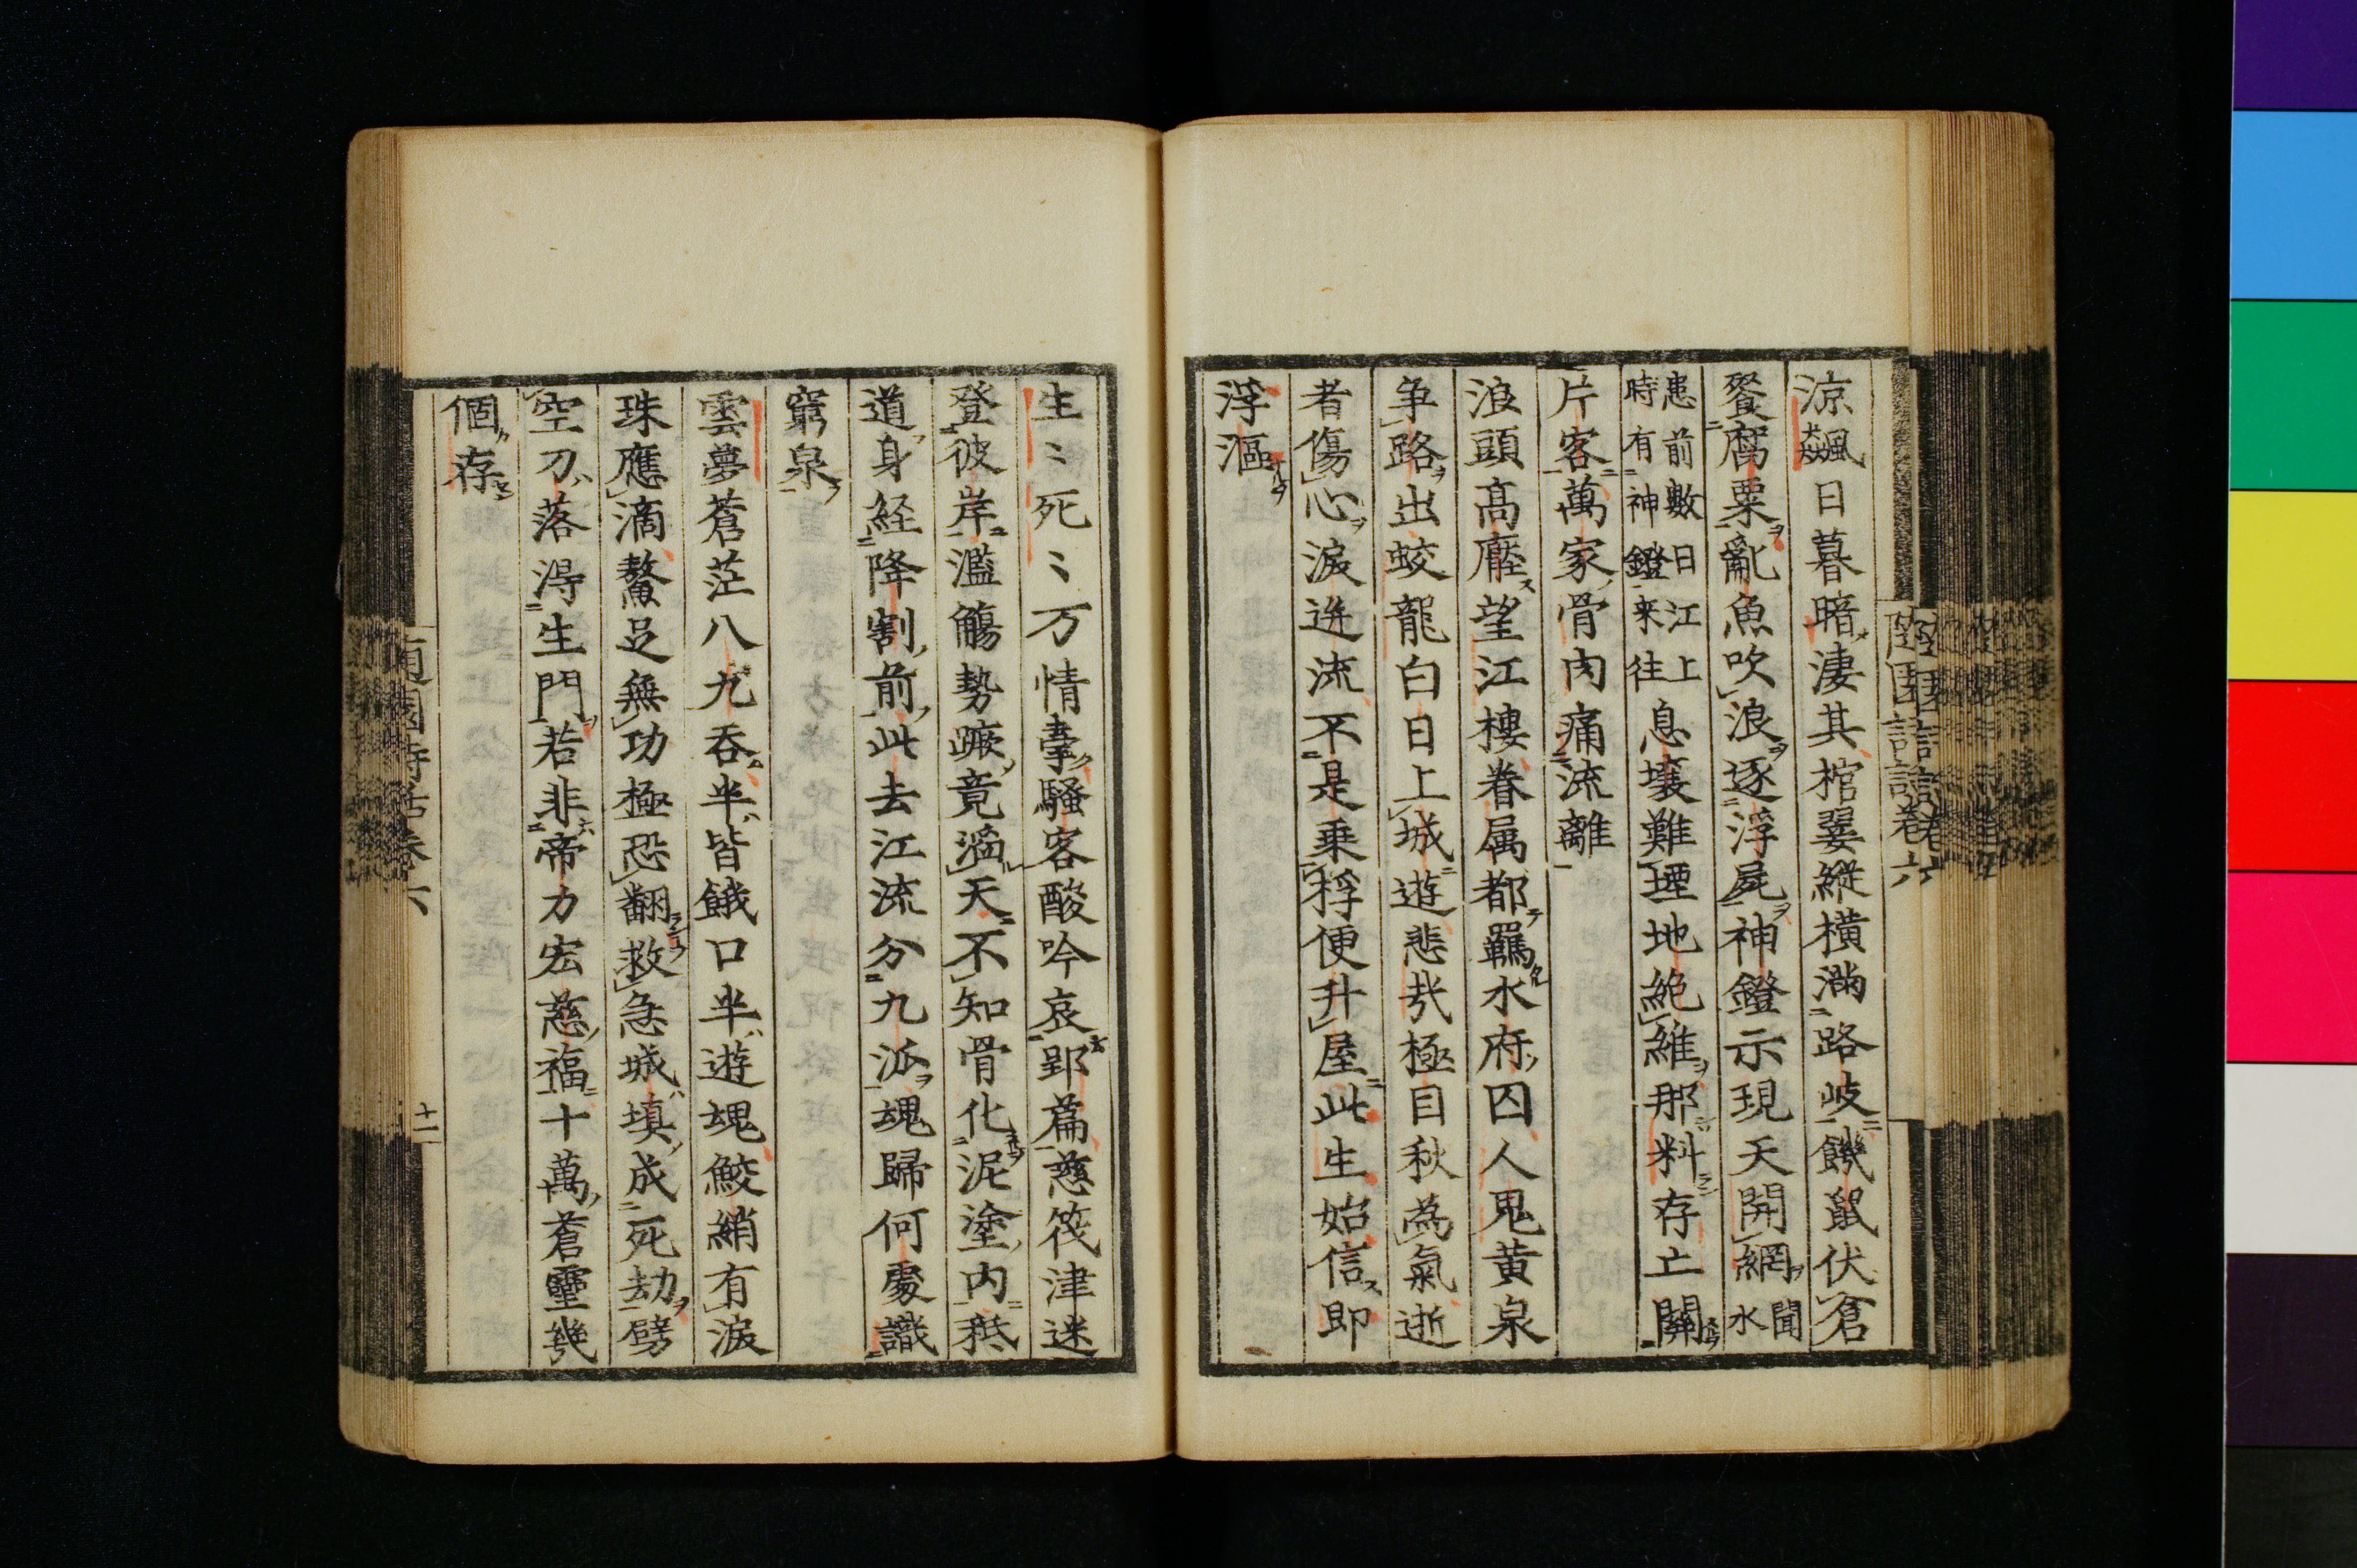 涼飆日暮暗淒其棺翣縱橫滿路岐饑鼠伏倉
餐腐粟亂魚吹浪逐浮屍神鐙示現天開網聞水
患前數日江上
時有神鐙來往
息壤難堙地絶維那料存亡關
片客萬家骨肉痛流離
浪頭高壓望江樓眷属都羈水府囚人鬼黄泉
争路出蛟龍白日上城遊悲哉極目秋為氣逝
者傷心淚迸流不是乗桴便升屋此生始信即
浮漚
生〻死〻万情牽騷客酸吟哀郢篇慈筏津迷
登彼岸濫觴勢蹶竟滔天不知骨化泥塗内秪
道身経降割前此去江流分九派魂歸何處識
窮泉
雲夢蒼茫八九吞半皆餓口半遊魂鮫綃有淚
珠應滴鰲足無功極恐翻救急城填成死劫劈
空刀落得生門若非帝力宏慈福十萬蒼靈幾
個存
隨園詩話卷六
十一